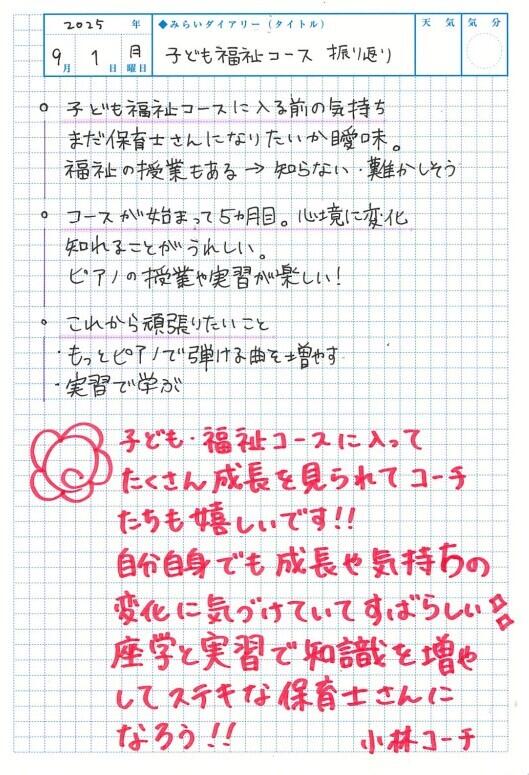 2025 年 ◆みらいダイアリー（タイトル） 天 気 気 分
9月 1日 月曜日 子ども福祉コース 振り返り
子ども福祉コースに入る前の気持ち
まだ保育士さんになりたいか曖味。
福祉の授業もある → 知らない・難かしそう
コースが始まって5ヵ月目。心境に変化
知れることがうれしい。
ピアノの授業や実習が楽しい！
これから頑張りたいこと
・もっとピアノで弾ける曲を増やす
・実習で学ぶ
子ども・福祉コースに入って
たくさん成長を見られてコーチ
たちも嬉しいです!!
自分自身でも成長や気持ちの
変化に気づけていてすばらしい
座学と実習で知識を増や
してステキな保育士さんに
なろう!!
小林コーチ